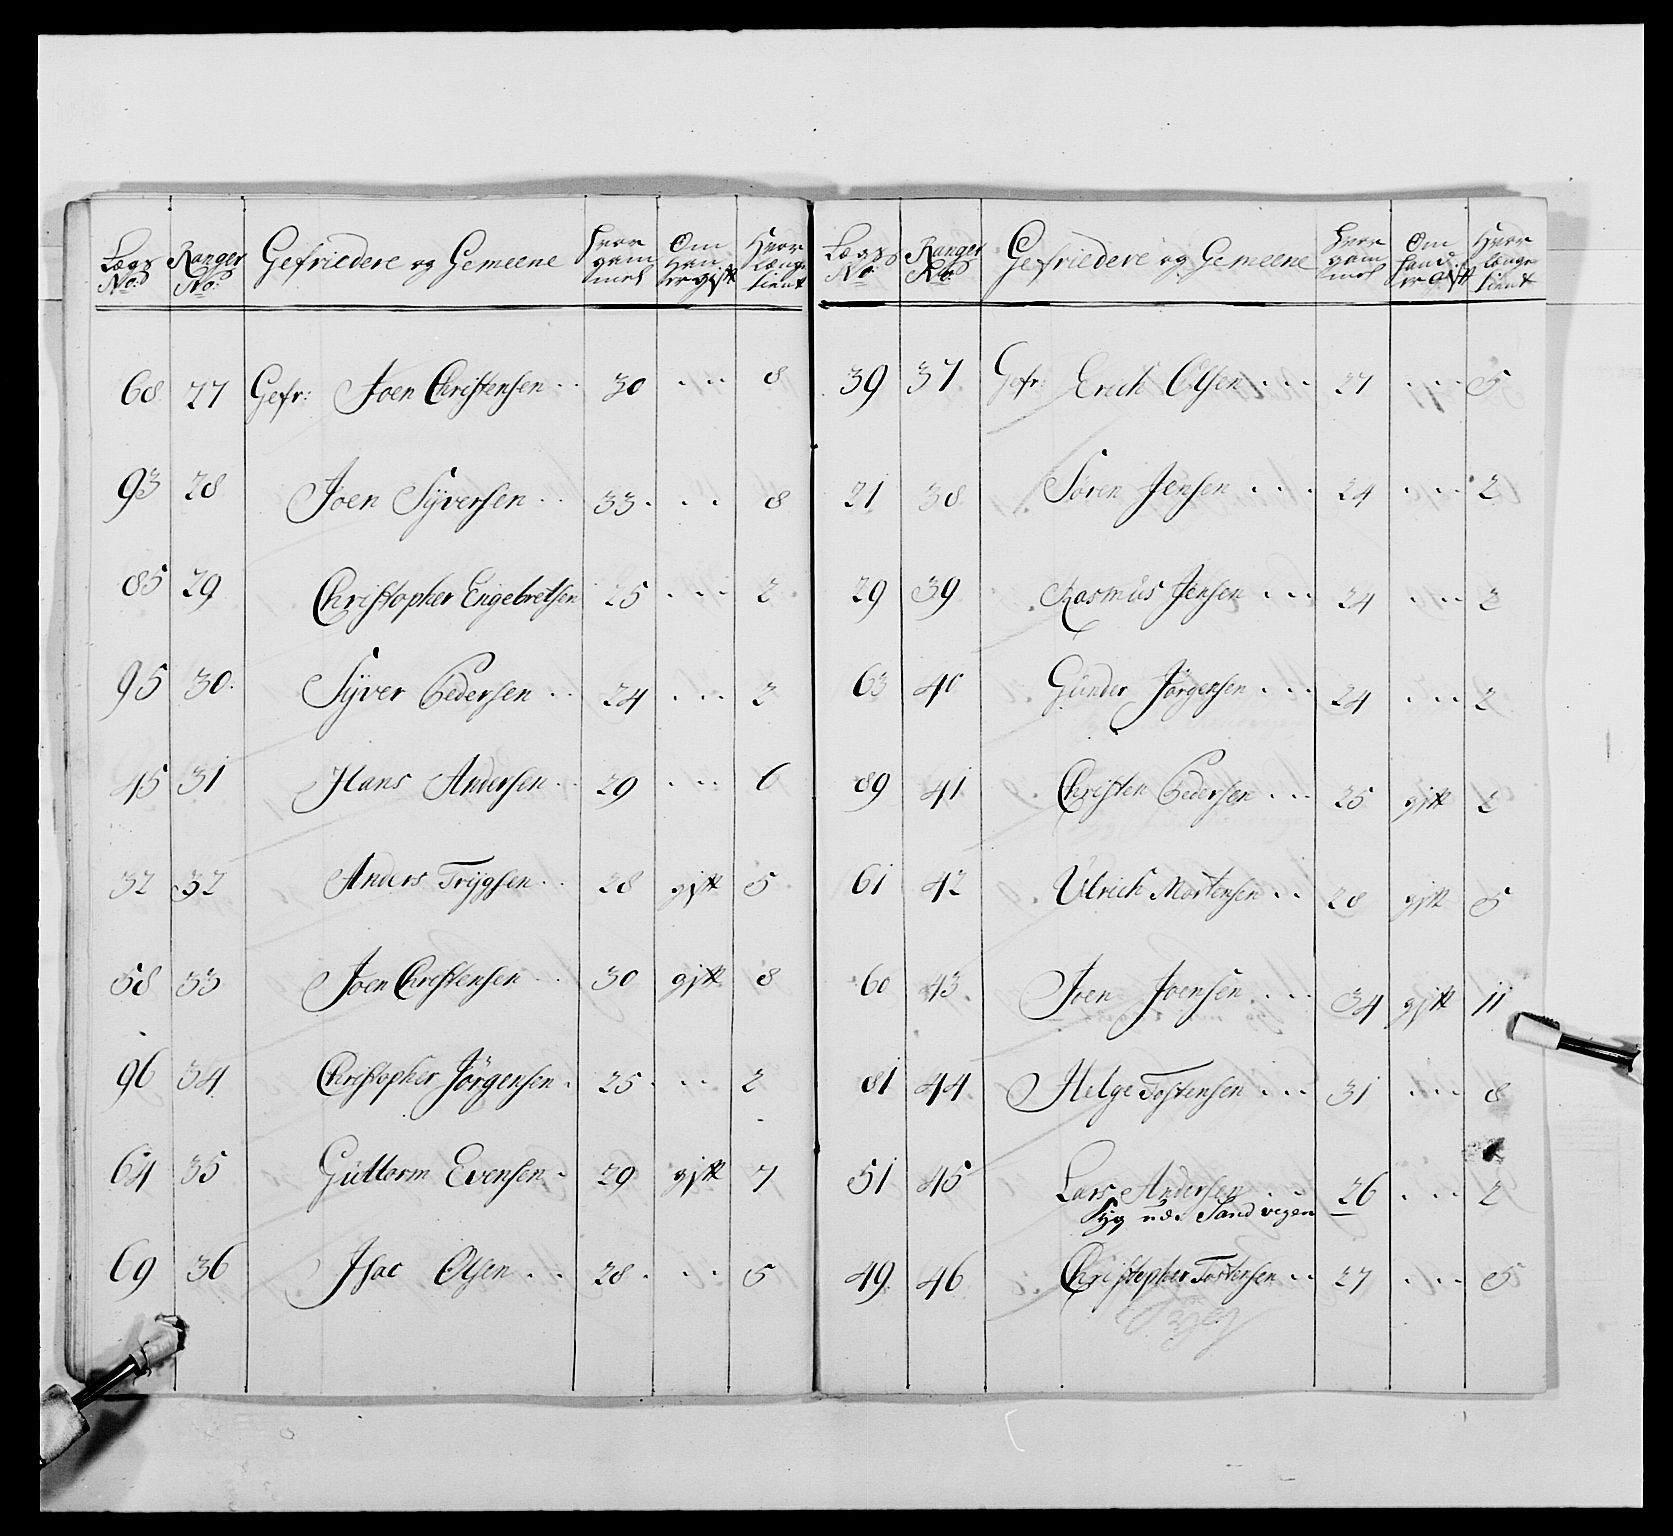 Lægs No: Ranger No: Gefriedere og Gemeene Hvor gam mel Om Han er gift Hvor længe tient
68 27 Gefr: Joen Christensen 30 8
93 28 Joen Syversen 33 8
85 29 Christopher Engebretsen 25 2
95 30 Syver Pedersen 24 2
45 31 Hans Andersen 29 6
32 32 Anders Trygsen 28 gift 5
58 33 Joen Christensen 30 gift 8
96 34 Christopher Jörgensen 25 2
64 35 Guttorm Evensen 29 gift 7
69 36 Isac Olsen 28 5
Lægs No: Ranger No: Gefriedere og Gemeene Hvor gam mel Om Hand er gift Hvor længe tient
39 37 Gefr: Erich Olsen 27 5
21 38 Sören Jensen 24 2
29 39 Rasmus Jensen 24 2
63 40 Gunder Jörgensen 24 2
89 41 Christen Pedersen 25 gift 2
61 42 Ulrich Mortensen 28 gift 5
60 43 Joen Joensen 34 gift 11
81 44 Helge Tostensen 31 8
51 45 Lars Andersen 26 2
Syg ved Sandvigen
49 46 Christopher Tostensen 27 5